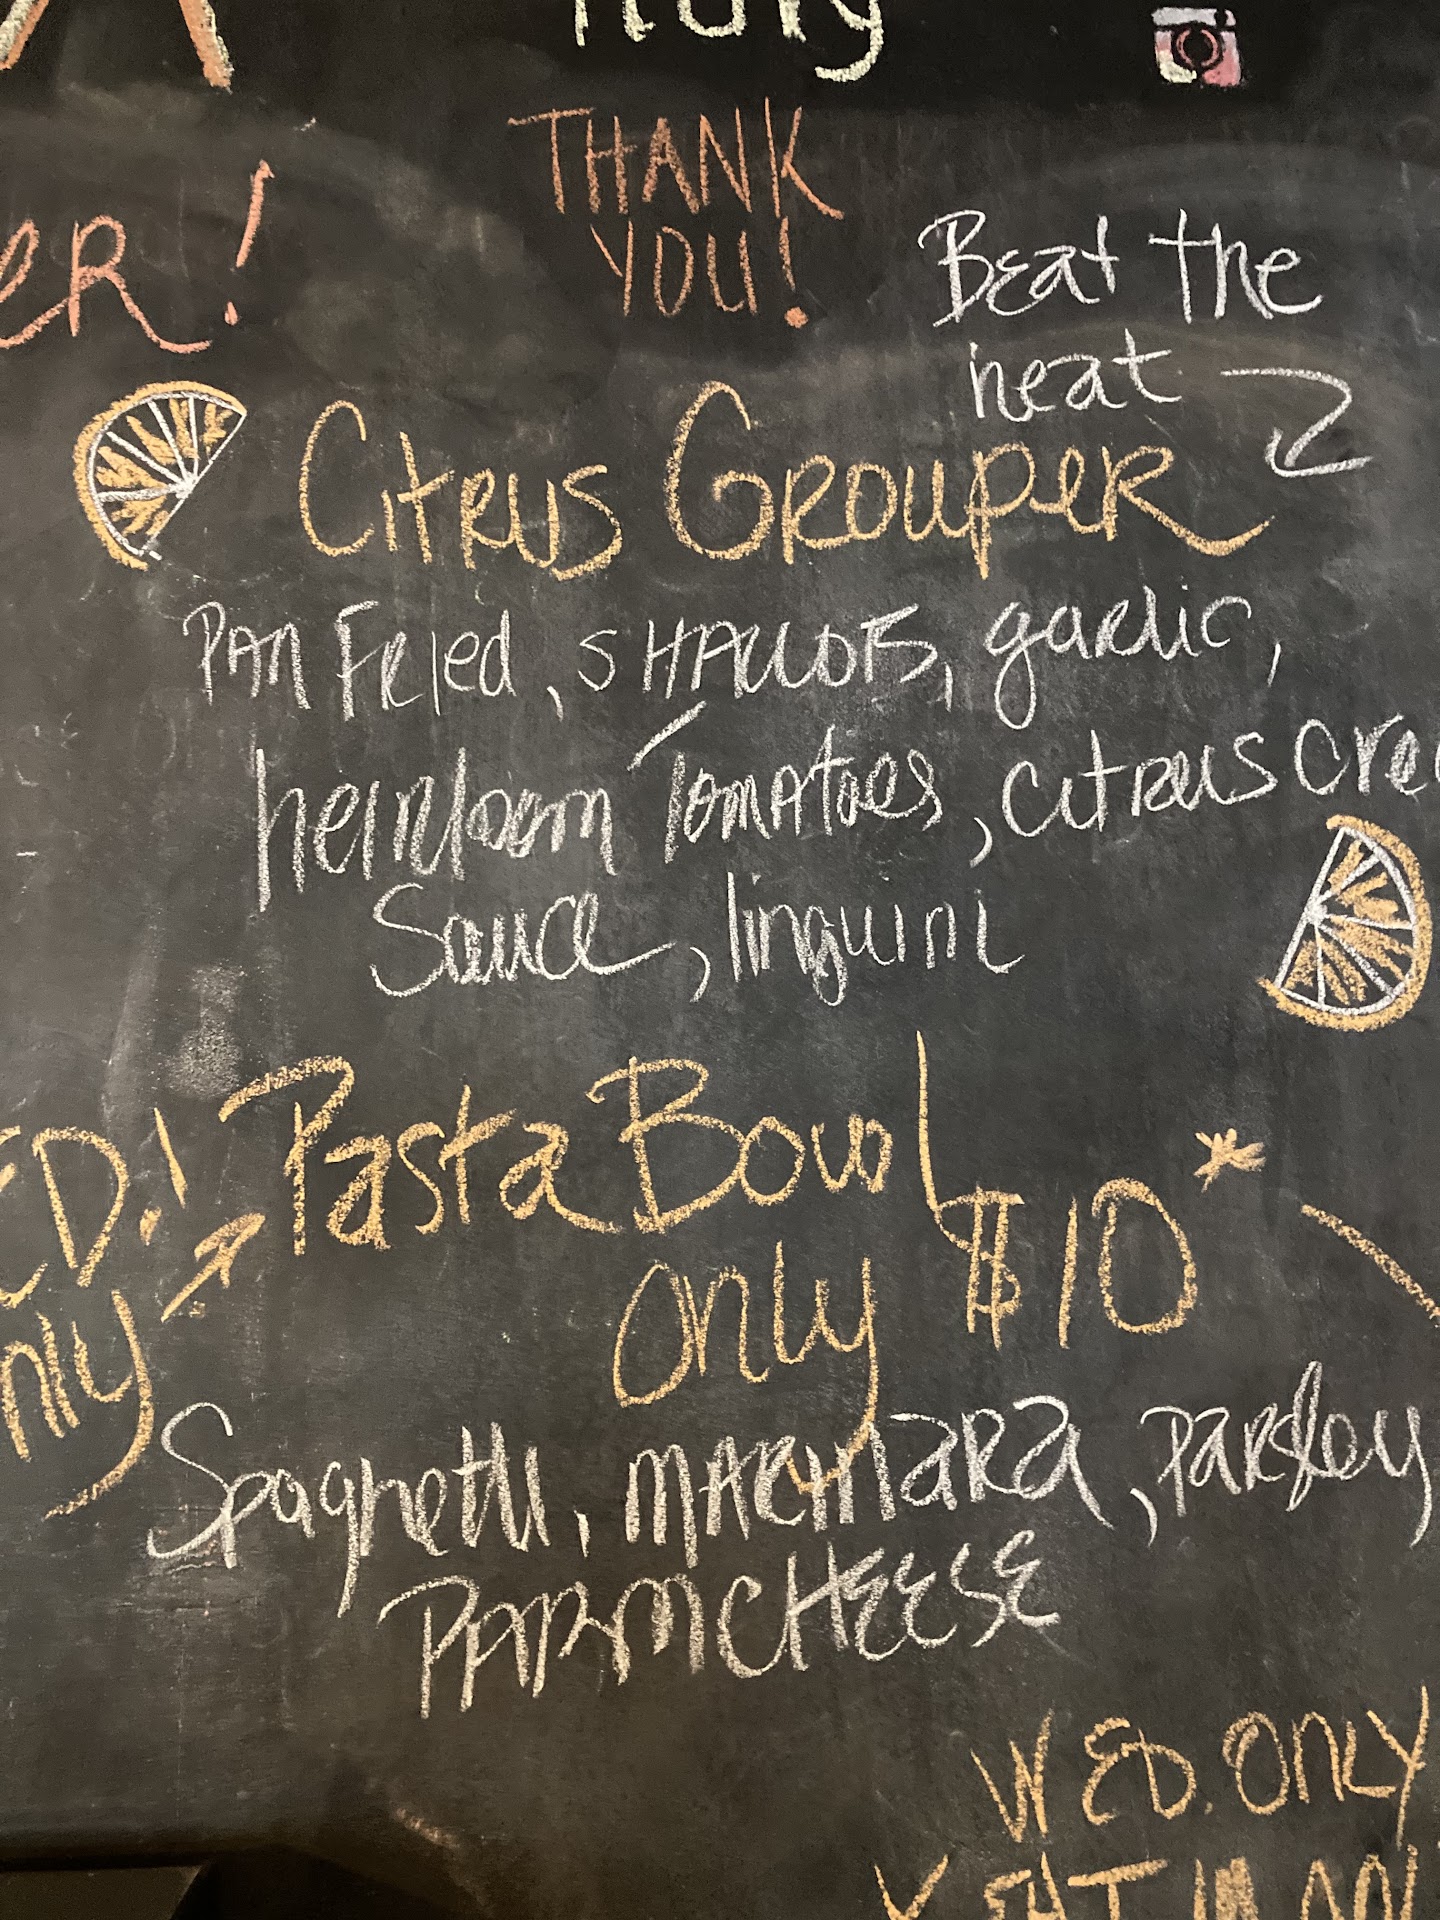 Italy
THANK
YOU!
ER!
Beat the
heat
Citrus Grouper
Pan Fried, shallots, garlic,
heirloom Tomatoes, citrus crea
Sauce, linguini
ED!
nly
Pasta Bowl
only $10*
Spaghetti, marinara, parsley
PARM CHEESE
WED. ONLY
* EAT IN ONL